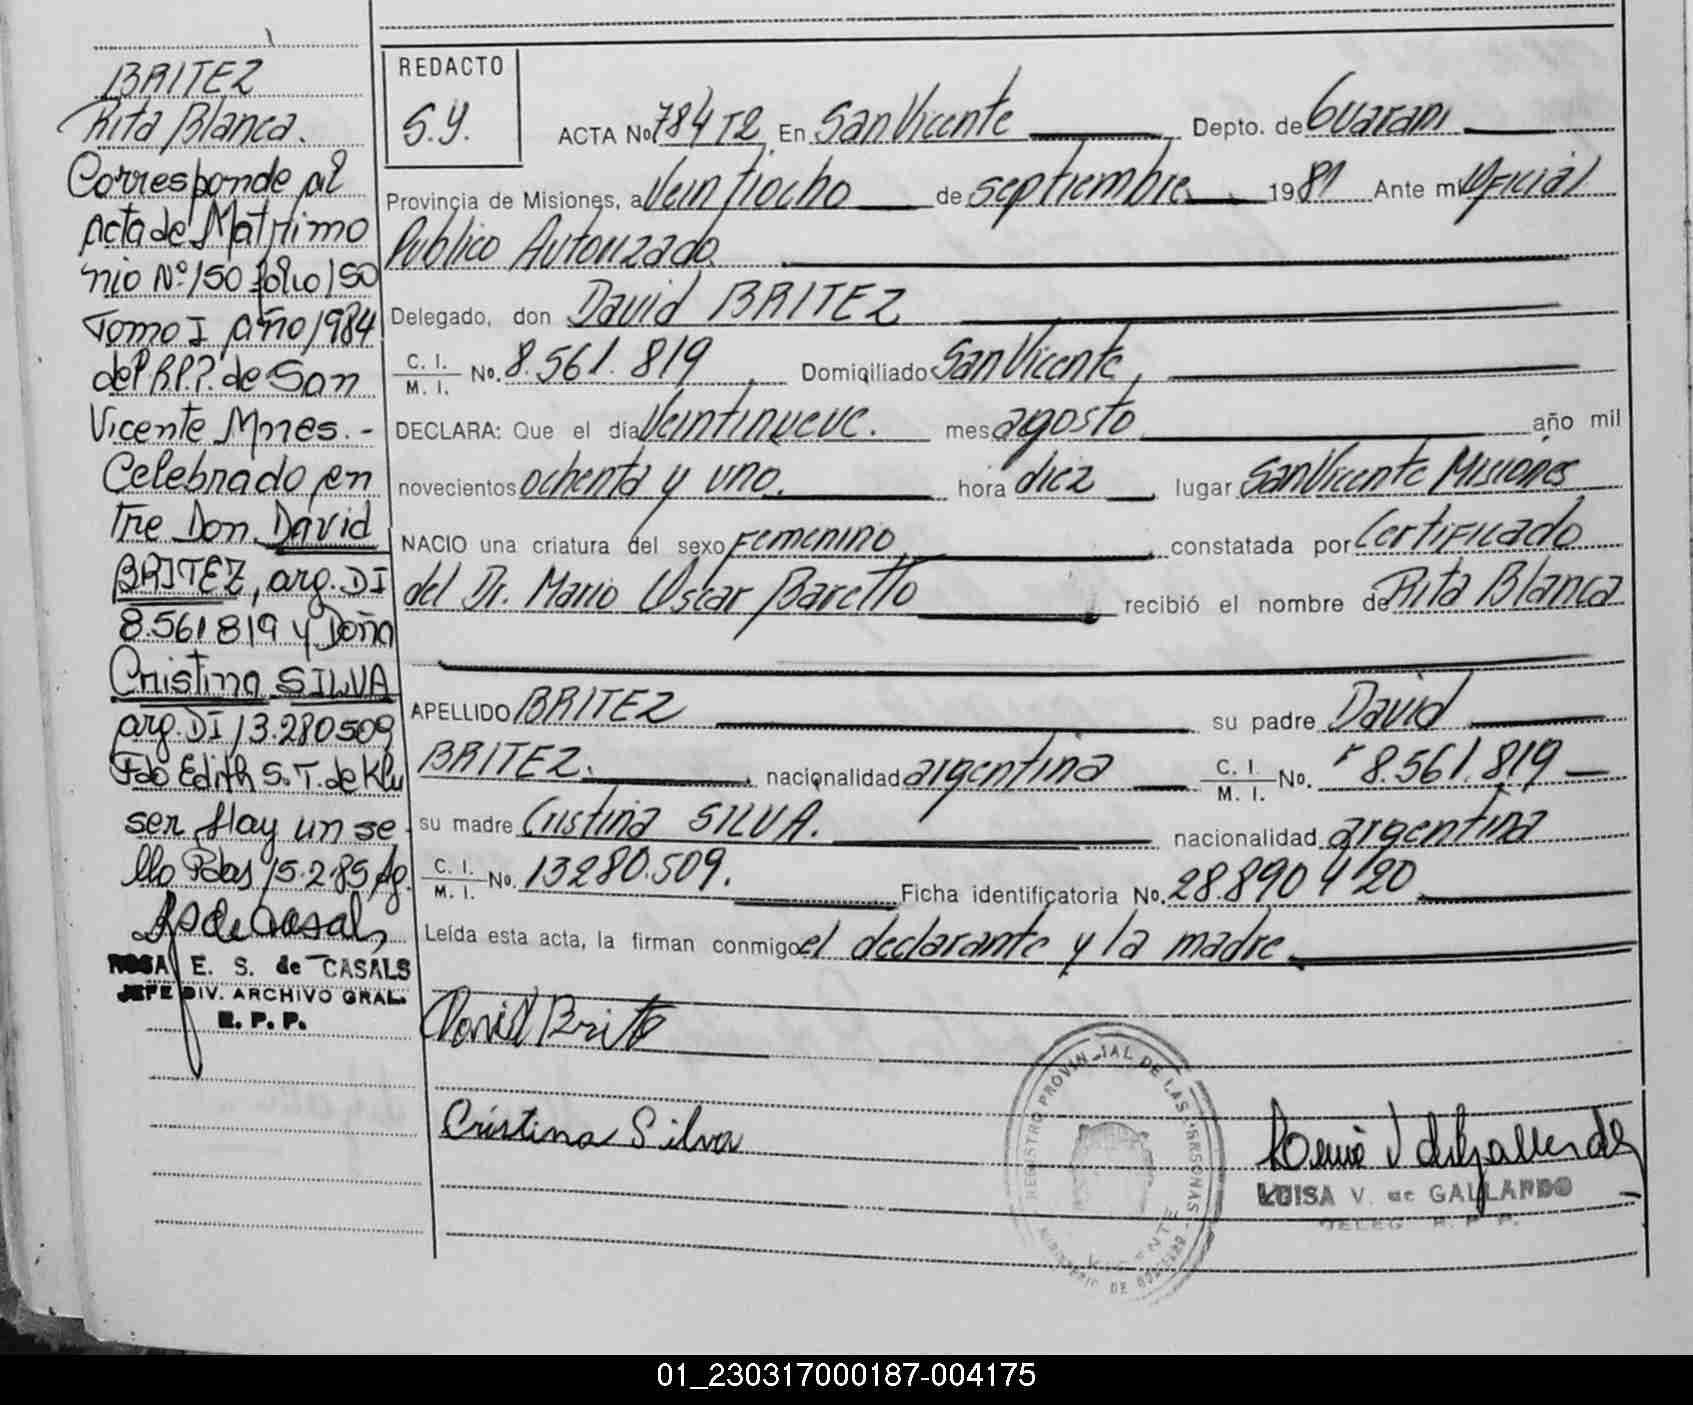 BRITEZ
Rita Blanca.
Corresponde al
acta de Matrimo
nio Nº 150 folio 150
Tomo I año 1984
del R.P.P. de San
Vicente Mnes.-
Celebrado en
tre Don David
BRITEZ, arg. DI
8.561819 y Doña
Cristina SILVA
arg. DI 13.280509
Fdo Edith S. T. de Klu
ser Hay un se
llo Pdas 15.2.85 Ag.
ROSA E. S. de CASALS
JEFE DIV. ARCHIVO GRAL.
R. P. P.
REDACTO
S.Y.
ACTA No 784 T2 En San Vicente Depto. de Guarani
Provincia de Misiones, a Veintiocho de septiembre 1981 Ante mi Oficial
Publico Autorizado
Delegado, don David BRITEZ
C. I. / M. I. No. 8.561.819 Domiciliado San Vicente,
DECLARA: Que el día Veintinueve. mes agosto año mil
novecientos ochenta y uno. hora diez, lugar San Vicente Misiones
NACIO una criatura del sexo Femenino, constatada por Certificado
del Dr. Mario Oscar Baretto recibió el nombre de Rita Blanca
APELLIDO BRITEZ su padre David
BRITEZ. nacionalidad argentina C. I. / M. I. No. 8.561.819
su madre Cristina SILVA. nacionalidad argentina
C. I. / M. I. No. 13280.509. Ficha identificatoria No. 28.890 420
Leída esta acta, la firman conmigo el declarante y la madre
David Brite
Cristina Silva
REGISTRO PROVINCIAL DE LAS PERSONAS
MINISTERIO DE GOBIERNO
LUISA V. de GALLARDO
DELEG. R. P. P.
01_230317000187-004175